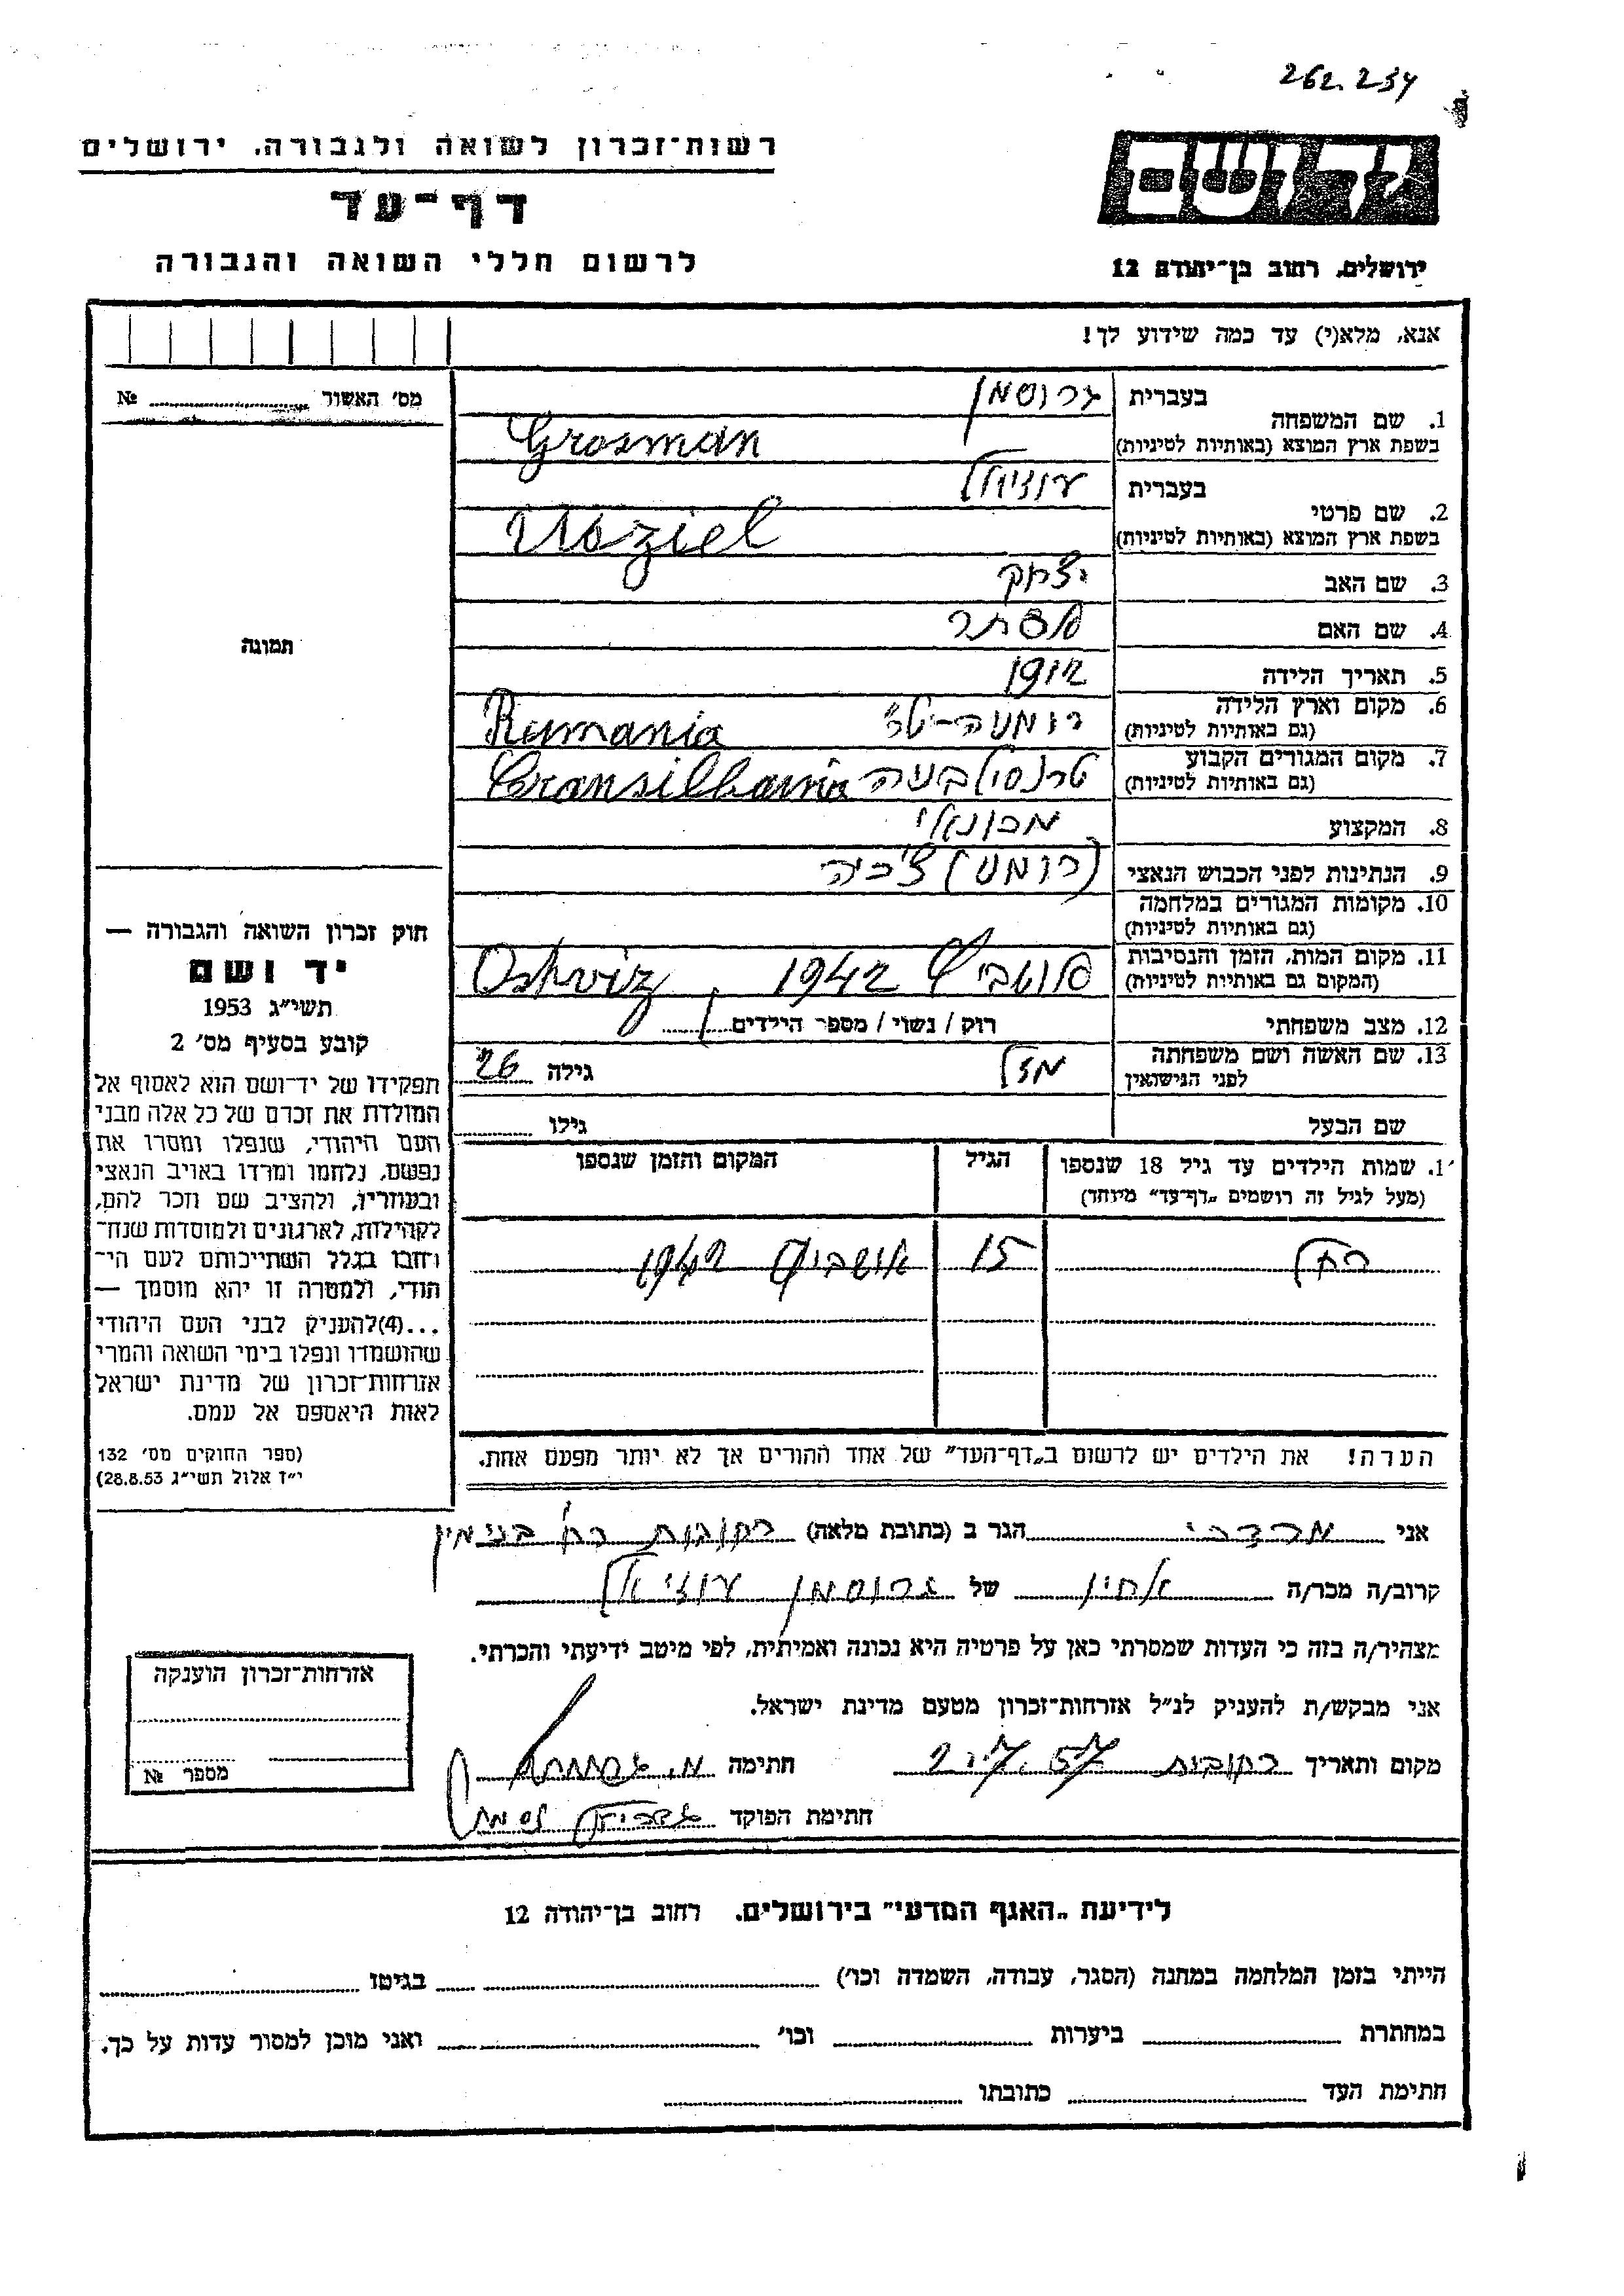 262.234
רשות־זכרון לשואה ולגבורה. ירושלים
דף־עד
לרשום חללי השואה והגבורה
ירושלים, רחוב בן־יהודה 12
אנא, מלא(י) עד כמה שידוע לך!
מס' האשור № 
תמונה
חוק זכרון השואה והגבורה —
יד ושם
תשי״ג 1953
קובע בסעיף מס' 2
תפקידו של יד־ושם הוא לאסוף אל
המולדת את זכרם של כל אלה מבני
העם היהודי, שנפלו ומסרו את
נפשם, נלחמו ומרדו באויב הנאצי
ובעוזריו, ולהציב שם וזכר להם,
לקהילות, לארגונים ולמוסדות שנח־
רחבו בגלל השתייכותם לעם הי־
הודי, ולמטרה זו יהא מוסמך —
...(4)להעניק לבני העם היהודי
שהושמדו ונפלו בימי השואה והמרי
אזרחות־זכרון של מדינת ישראל
לאות היאספם אל עמם.
(ספר החוקים מס' 132
י״ז אלול תשי״ג 28.8.53)
בעברית גרוסמן
1. שם המשפחה
בשפת ארץ המוצא (באותיות לטיניות) Grosman
בעברית עוזיאל
2. שם פרטי
בשפת ארץ המוצא (באותיות לטיניות) Uoziel
3. שם האב יצחק
4. שם האם אסתר
5. תאריך הלידה 1912
6. מקום וארץ הלידה
(גם באותיות לטיניות) Rumania
7. מקום המגורים הקבוע
(גם באותיות לטיניות) טרנסילבניה Transilbania
8. המקצוע מכונאי
9. הנתינות לפני הכבוש הנאצי
10. מקומות המגורים במלחמה
(גם באותיות לטיניות)
11. מקום המות, הזמן והנסיבות
(המקום גם באותיות לטיניות) 1942 Oshviz
12. מצב משפחתי רוק / נשוי / מספר הילדים 1
13. שם האשה ושם משפחתה
לפני הנישואין מזל גילה 26
שם הבעל גילו
1. שמות הילדים עד גיל 18 שנספו הגיל המקום והזמן שנספו
(מעל לגיל זה רושמים „דף־עד״ מיוחד)
רחל 15 אושביץ 1942
הערה! את הילדים יש לרשום ב„דף־העד״ של אחד ההורים אך לא יותר מפעם אחת.
אני מרדכי הגר ב (כתובת מלאה) רחובות רח' בנימין
קרוב/ה מכר/ה אחיו של גרוסמן עוזיאל
מצהיר/ה בזה כי העדות שמסרתי כאן על פרטיה היא נכונה ואמיתית, לפי מיטב ידיעתי והכרתי.
אני מבקש/ת להעניק לנ״ל אזרחות־זכרון מטעם מדינת ישראל.
מקום ותאריך רחובות חתימה
חתימת הפוקד
אזרחות־זכרון הוענקה
מספר №
לידיעת „האגף המדעי״ בירושלים. רחוב בן־יהודה 12
הייתי בזמן המלחמה במחנה (הסגר, עבודה, השמדה וכו') בגיטו
במחתרת ביערות וכו' ואני מוכן למסור עדות על כך.
חתימת העד כתובתו